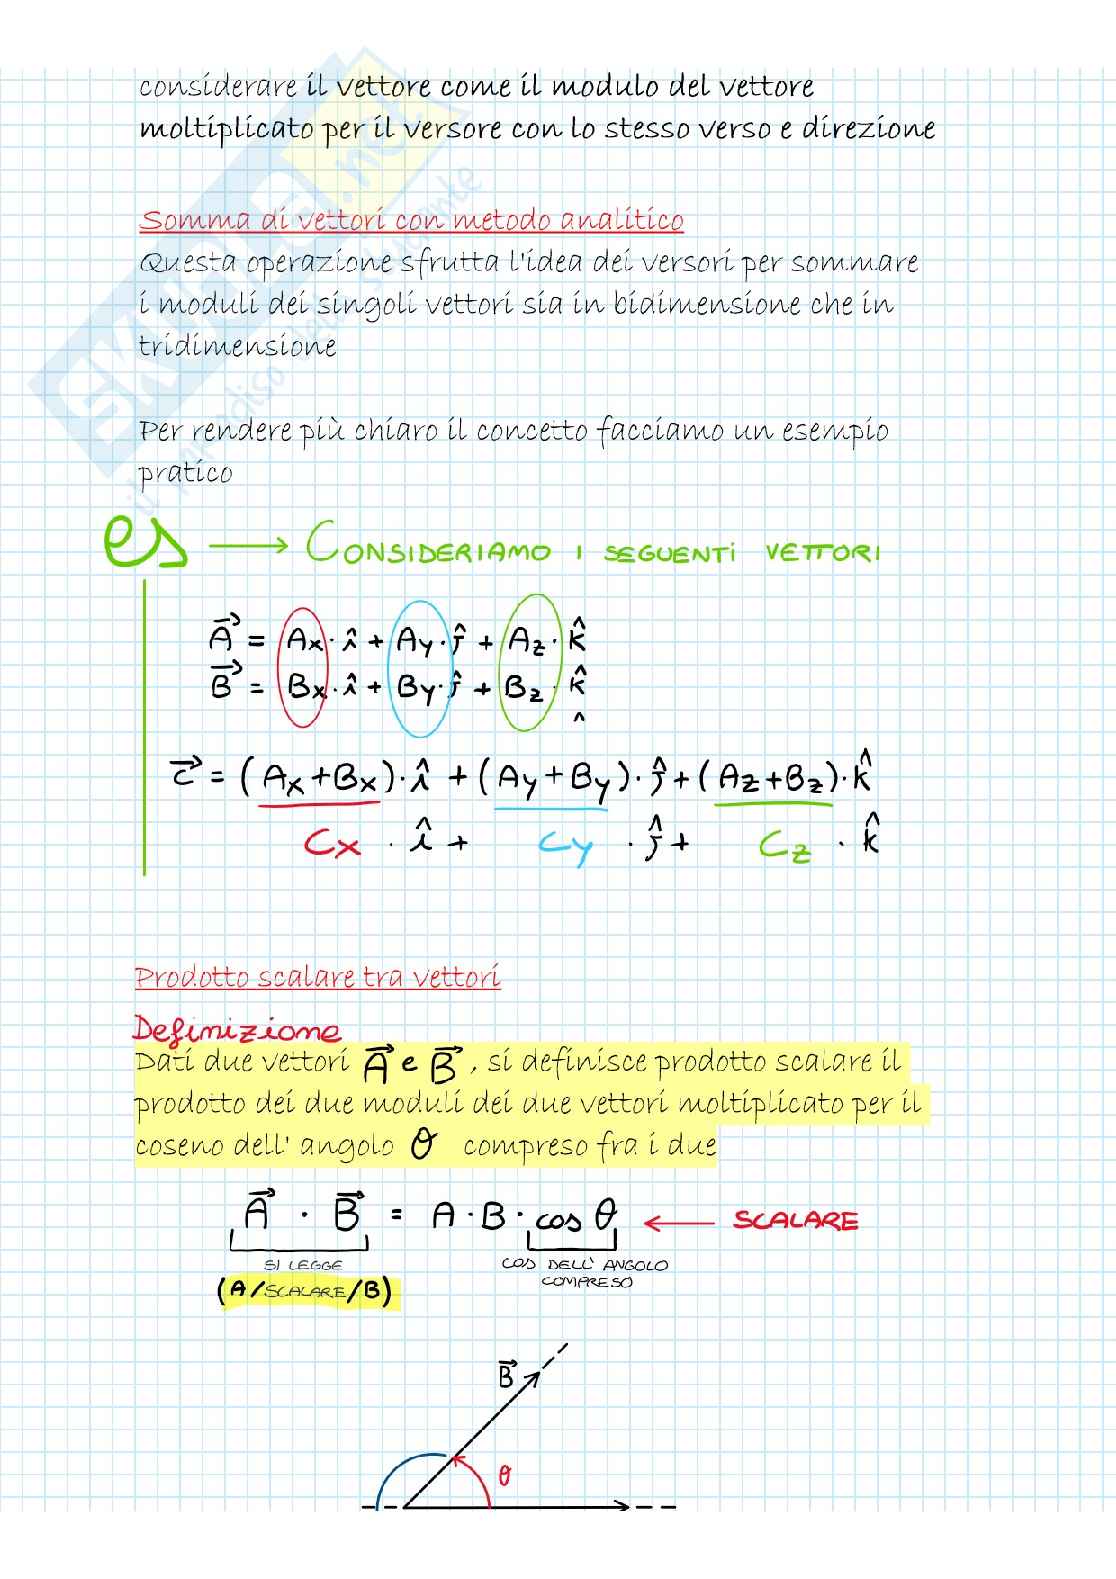 considerare il vettore come il modulo del vettore
moltiplicato per il versore con lo stesso verso e direzione
Somma di vettori con metodo analitico
Questa operazione sfrutta l'idea dei versori per sommare
i moduli dei singoli vettori sia in bidimensione che in
tridimensione
Per rendere più chiaro il concetto facciamo un esempio
pratico
es → CONSIDERIAMO I SEGUENTI VETTORI
A⃗ = Ax · î + Ay · ĵ + Az · k̂
B⃗ = Bx · î + By · ĵ + Bz · k̂
^
c⃗ = (Ax+Bx) · î + (Ay+By) · ĵ + (Az+Bz) · k̂
Cx · î + Cy · ĵ + Cz · k̂
Prodotto scalare tra vettori
Definizione
Dati due vettori A⃗ e B⃗, si definisce prodotto scalare il
prodotto dei due moduli dei due vettori moltiplicato per il
coseno dell' angolo θ compreso fra i due
A⃗ · B⃗ = A · B · cos θ ← SCALARE
SI LEGGE
(A/SCALARE/B)
COS DELL' ANGOLO
COMPRESO
B⃗
θ
SKUOLA.net
il paradiso dello studente